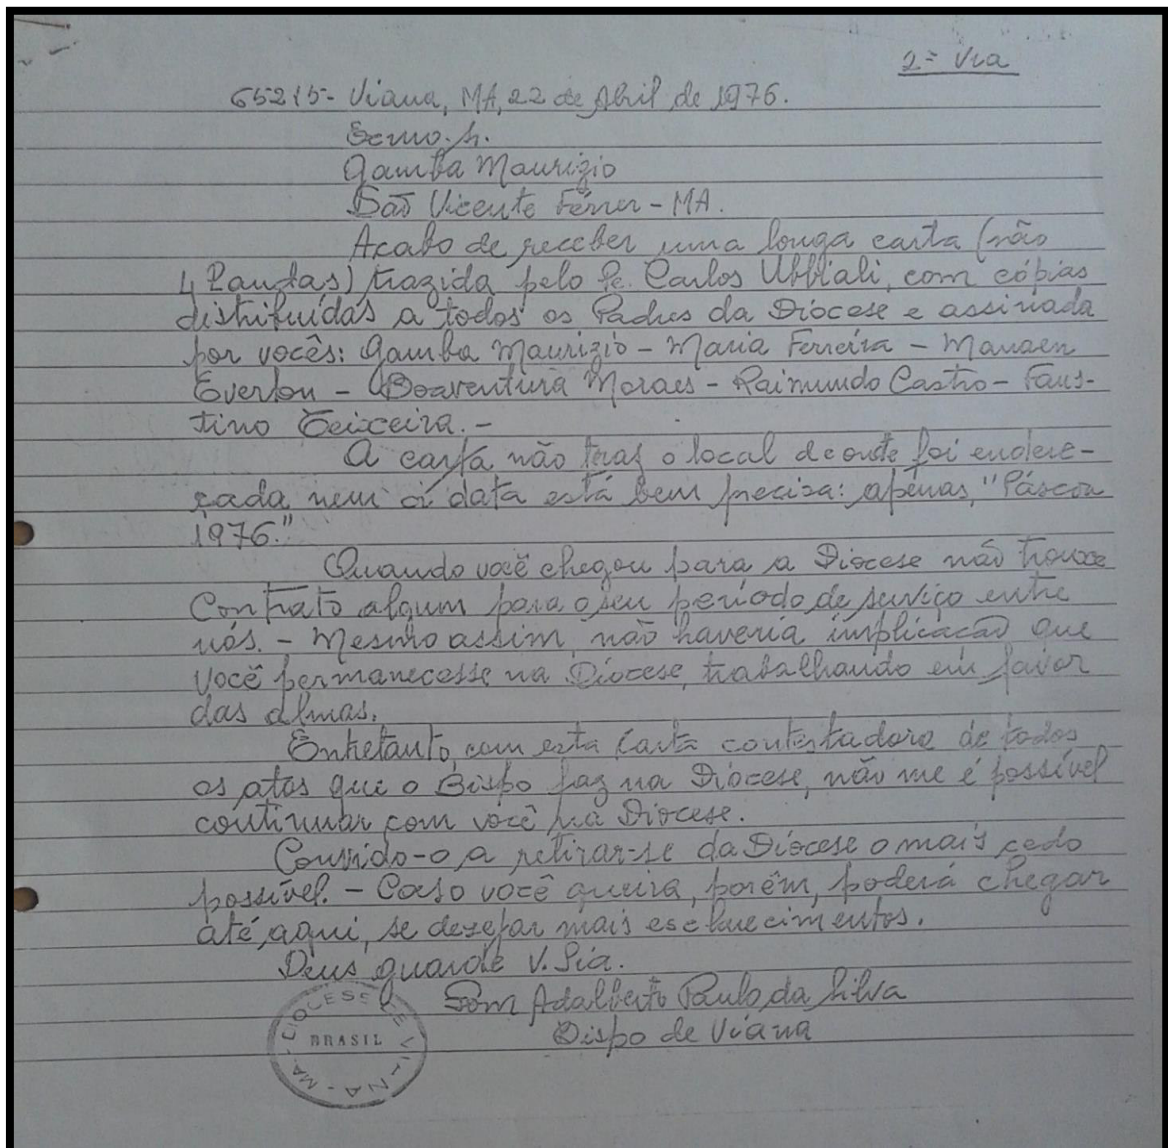 2ª Via
65215- Viana, MA, 22 de Abril de 1976.
Exmo. Sr.
Gamba Maurizio
São Vicente Férrer - MA.
Acabo de receber uma longa carta (não
4 Laudas) trazida pelo Pe. Carlos Ubbiali, com cópias
distribuídas a todos os Padres da Diocese e assinada
por vocês: Gamba Maurizio - Maria Ferreira - Manaen
Everton - Boaventura Moraes - Raimundo Castro - Faus-
tino Teixeira. -
A carta não traz o local de onde foi endere-
çada nem a data está bem precisa: apenas, "Páscoa
1976."
Quando você chegou para a Diocese não trouxe
Contrato algum para o seu período de serviço entre
nós. - Mesmo assim, não haveria implicação que
você permanecesse na Diocese, trabalhando em favor
das almas.
Entretanto, com esta Carta contestadora de todos
os atos que o Bispo faz na Diocese, não me é possível
continuar com você na Diocese.
Convido-o a retirar-se da Diocese o mais cedo
possível. - Caso você queira, porém, poderá chegar
até aqui, se desejar mais esclarecimentos.
Deus guarde V. Sia.
Dom Adalberto Paulo da Silva
Bispo de Viana
DIOCESE DE VIANA - MA -
BRASIL